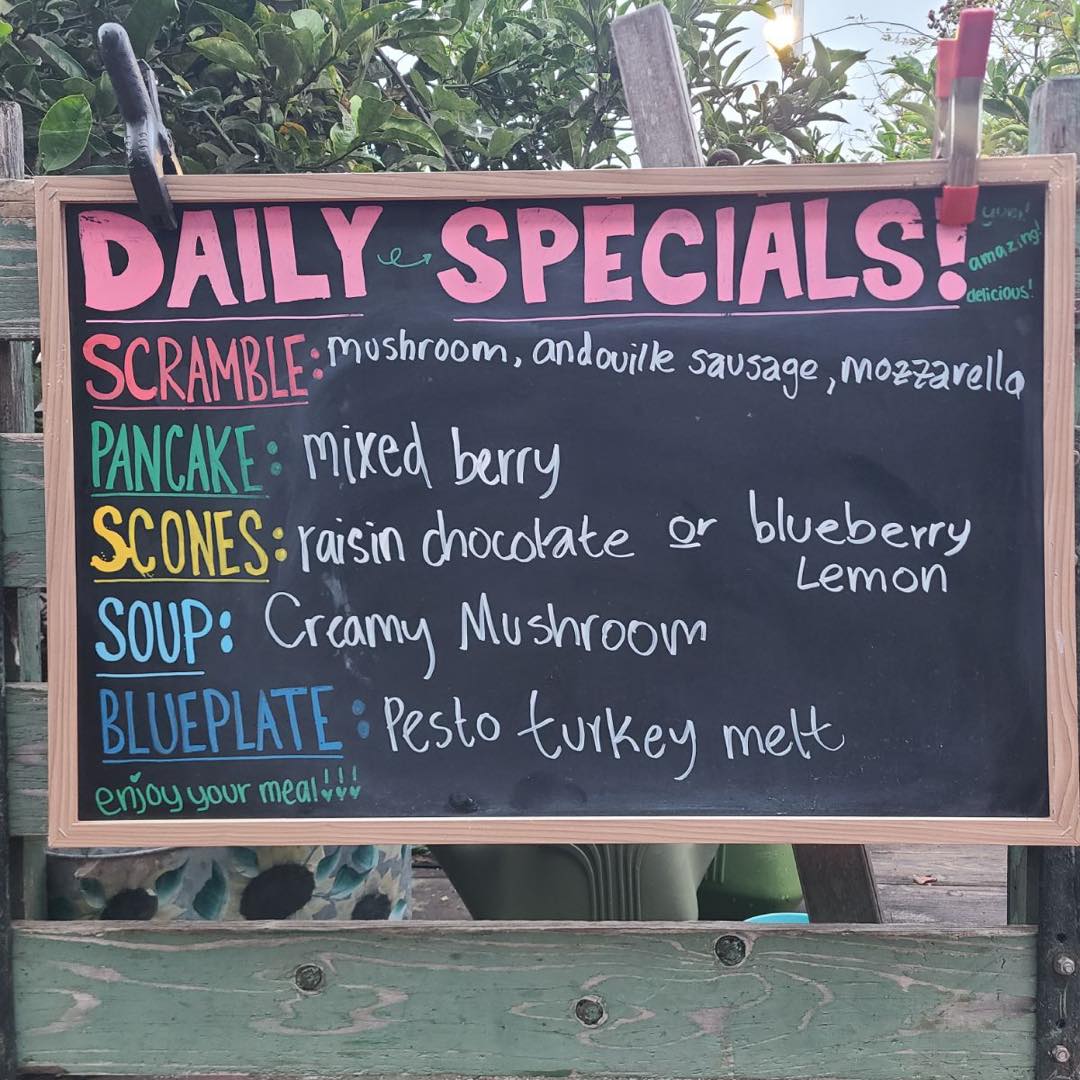 DAILY SPECIALS!
amazing!
delicious!
SCRAMBLE: mushroom, andouille sausage, mozzarella
PANCAKE: mixed berry
SCONES: raisin chocolate or blueberry
Lemon
SOUP: Creamy Mushroom
BLUEPLATE: Pesto turkey melt
enjoy your meal!!!